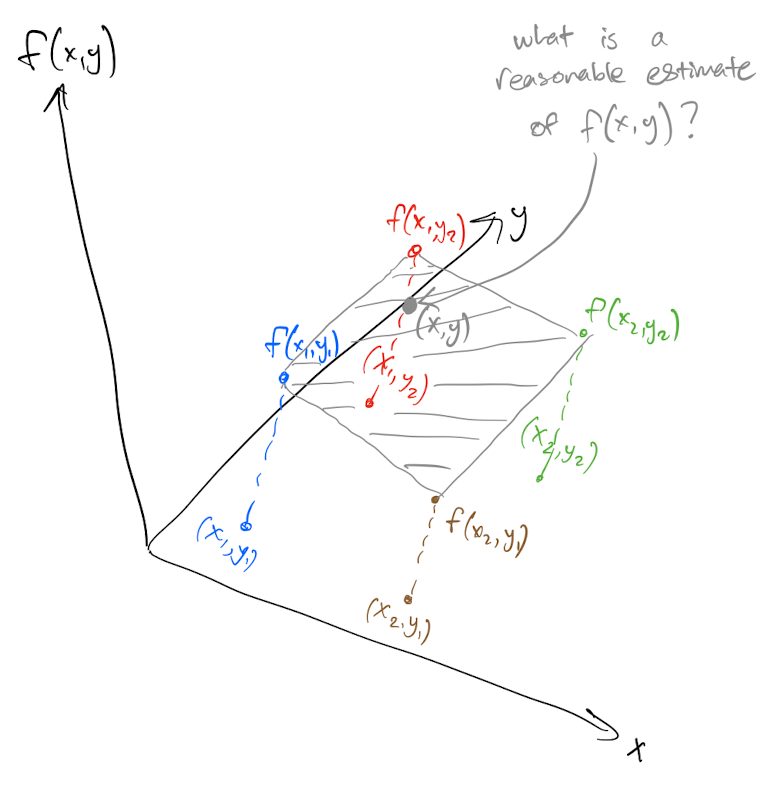 what is a
reasonable estimate
of f(x,y)?
f(x,y)
f(x,y₂)
y
f(x₂,y₂)
(x,y)
f(x₁,y₁)
(x₁,y₂)
(x₂,y₂)
(x₁,y₁)
f(x₂,y₁)
(x₂,y₁)
x